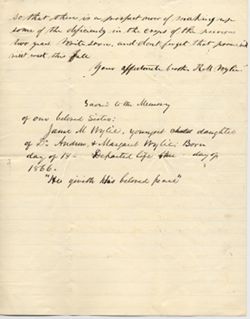 so that there is a prospect now of making up
some of the deficiency in the crops of the previous
two years. Write soon, and don't forget that promised
visit this fall
Your affectionate brother, R. M. Wylie
Sacred to the Memory
of our beloved Sister:
Jane M Wylie, youngest daughter
of Dr Andrew, & Margaret Wylie: Born
day of 18 – Departed life the – day of
1866.
"He giveth His beloved peace"